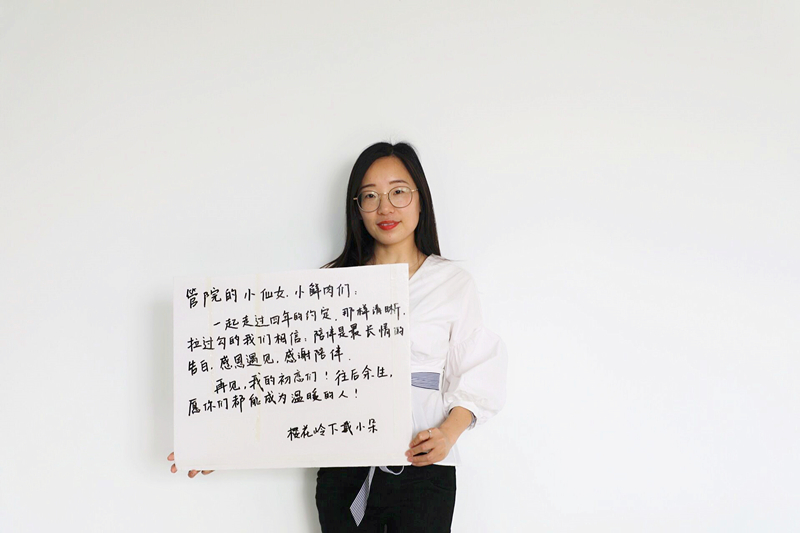 管院的小仙女、小鲜肉们:
一起走过四年的约定,那样清晰,
拉过勾的我们相信:陪伴是最长情的
告白,感恩遇见,感谢陪伴.
再见,我的初恋们!往后余生,
愿你们都能成为温暖的人!
樱花岭下戴小朵